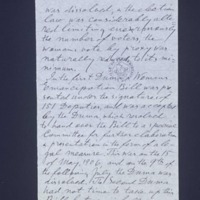 was dissolved, a the election
law was considerably alte-
red limiting enormously
the number of voters, the
womans vote by proxy was
naturally reduced to its mi-
nimum.
In the first Duma a Womens
Emancipation Bill was pre-
sented under the signature of
151 Deputies and was accepted
by the Duma which resolved
to hand over the Bill to a special
Committee for further elaboration
a presentation in the form of a le-
gal measure. This was on the
of May 1906, and on the 9th of
the following July the Duma was
dissolved. The Second Duma
had not time to take up this